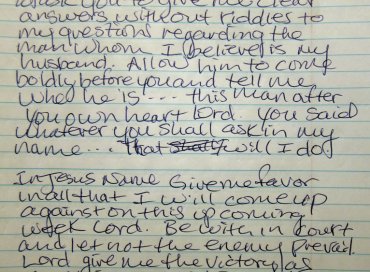 to ask you to give me clear
answers without riddles to
my questions regarding the
man whom I believe is my
husband. Allow him to come
boldly before you and tell me
who he is .... this man after
you own heart Lord. You said
whatever you shall ask in my
name... that shall will I do
In Jesus Name Give me favor
in all that I will come up
against on this upcoming
week Lord. Be with in Court
and let not the enemy prevail.
Lord give me the victory as